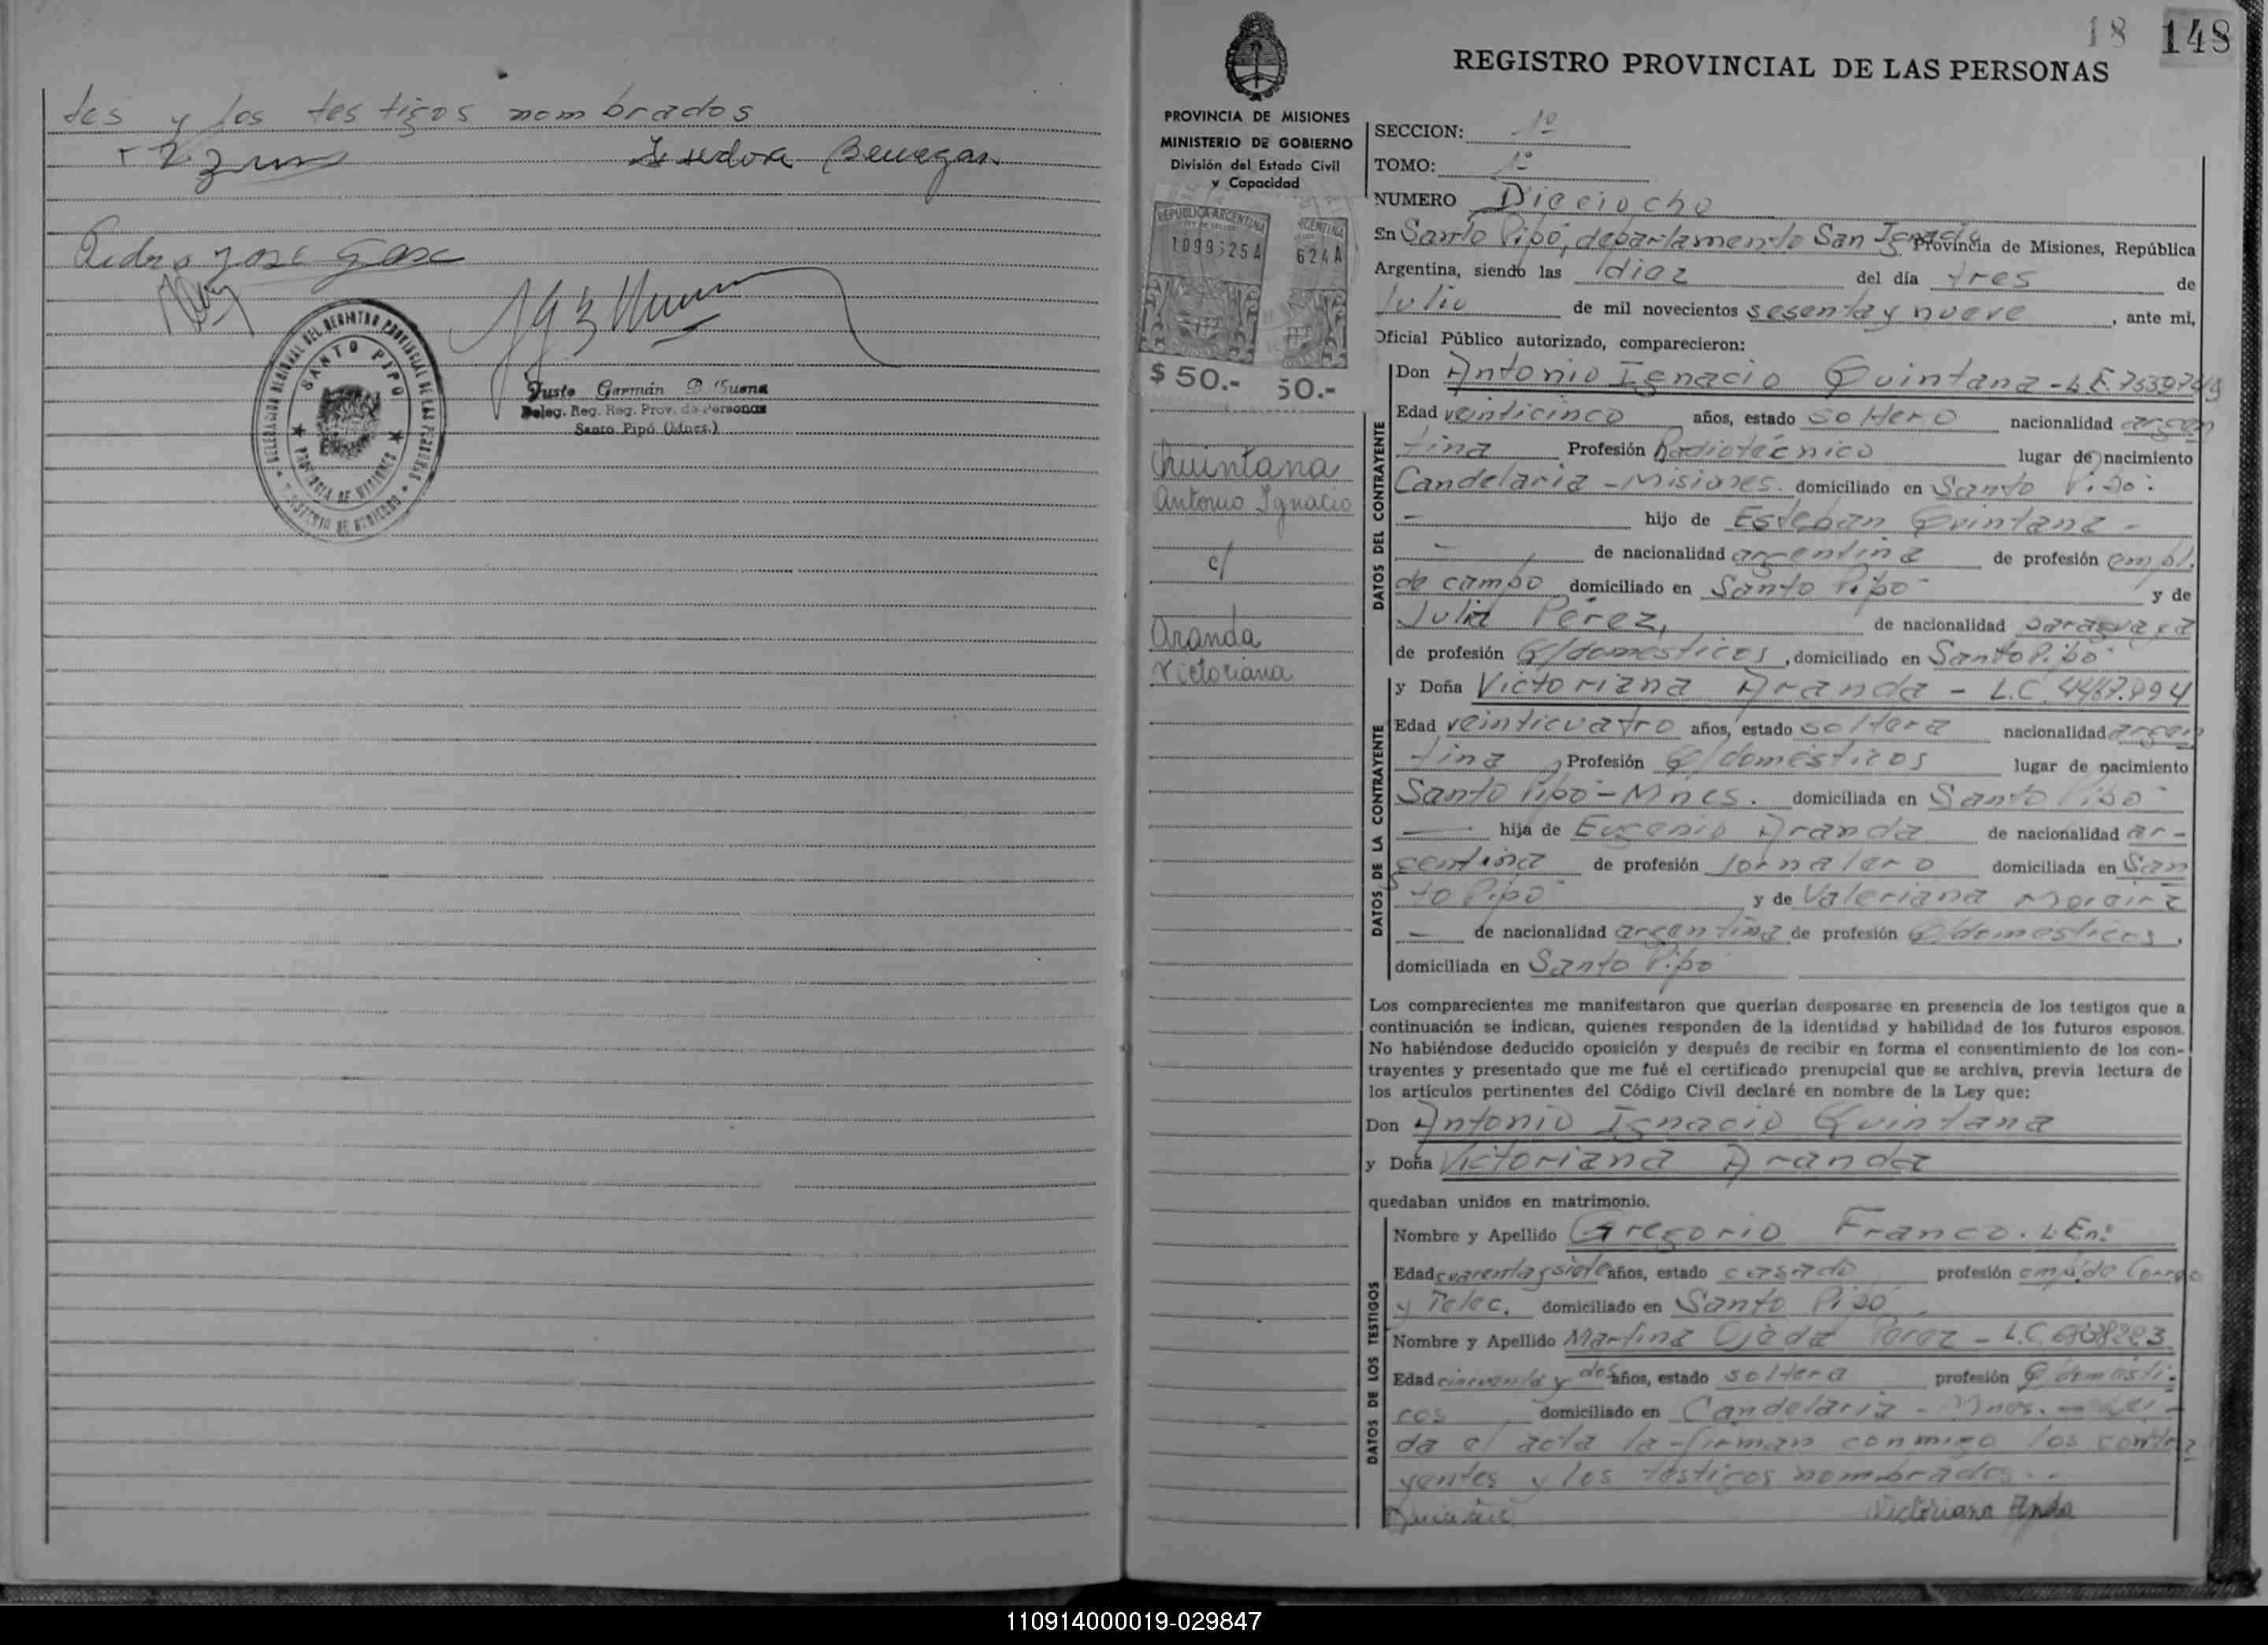 tes y los testigos nombrados
Isidora Benegas
Pedro José
DELEGACION REGIONAL DEL REGISTRO PROVINCIAL DE LAS PERSONAS
SANTO PIPO
PROVINCIA DE MISIONES
MINISTERIO DE GOBIERNO
Justo Germán
Deleg. Reg. Reg. Prov. de Personas
Santo Pipó (Mnes.)
18 148
REGISTRO PROVINCIAL DE LAS PERSONAS
PROVINCIA DE MISIONES
MINISTERIO DE GOBIERNO
División del Estado Civil
y Capacidad
REPUBLICA ARGENTINA
1099525A
624A
$ 50.- 50.-
Quintana
Antonio Ignacio
c/
Aranda
Victoriana
SECCION: 1º
TOMO: 1º
NUMERO Dieciocho
En Santo Pipó, departamento San Ignacio Provincia de Misiones, República
Argentina, siendo las diez del día tres de
Julio de mil novecientos sesenta y nueve, ante mi,
Oficial Público autorizado, comparecieron:
DATOS DEL CONTRAYENTE
Don Antonio Ignacio Quintana - L.E.
Edad veinticinco años, estado soltero nacionalidad argen
tina Profesión Radiotécnico lugar de nacimiento
Candelaria - Misiones. domiciliado en Santo Pipó.
— hijo de Esteban Quintana -
— de nacionalidad argentina de profesión empl.
de campo domiciliado en Santo Pipó y de
Julia Pérez, de nacionalidad paraguaya
de profesión Q/domésticos, domiciliado en Santo Pipó
DATOS DE LA CONTRAYENTE
y Doña Victoriana Aranda - L.C.
Edad veinticuatro años, estado soltera nacionalidad argen
tina, Profesión Q/domésticos lugar de nacimiento
Santo Pipó - Mnes. domiciliada en Santo Pipó
— hija de Eugenio Aranda de nacionalidad ar-
gentina de profesión Jornalero domiciliada en San
to Pipó y de Valeriana Moraira
— de nacionalidad argentina de profesión Q/domesticos,
domiciliada en Santo Pipó
Los comparecientes me manifestaron que querían desposarse en presencia de los testigos que a
continuación se indican, quienes responden de la identidad y habilidad de los futuros esposos.
No habiéndose deducido oposición y después de recibir en forma el consentimiento de los con-
trayentes y presentado que me fué el certificado prenupcial que se archiva, previa lectura de
los artículos pertinentes del Código Civil declaré en nombre de la Ley que:
Don Antonio Ignacio Quintana
y Doña Victoriana Aranda
quedaban unidos en matrimonio.
DATOS DE LOS TESTIGOS
Nombre y Apellido Gregorio Franco. L.E nº
Edad cuarenta y siete años, estado casado profesión emp. de Correo
y Telec. domiciliado en Santo Pipó.
Nombre y Apellido Martina Ojeda Perez - L.C.
Edad cincuenta y dos años, estado soltera profesión Q/domésti-
cos domiciliado en Candelaria - Mnes. - Leí-
da el acta la firman conmigo los contra
yentes y los testigos nombrados..
Victoriana Anda
110914000019-029847